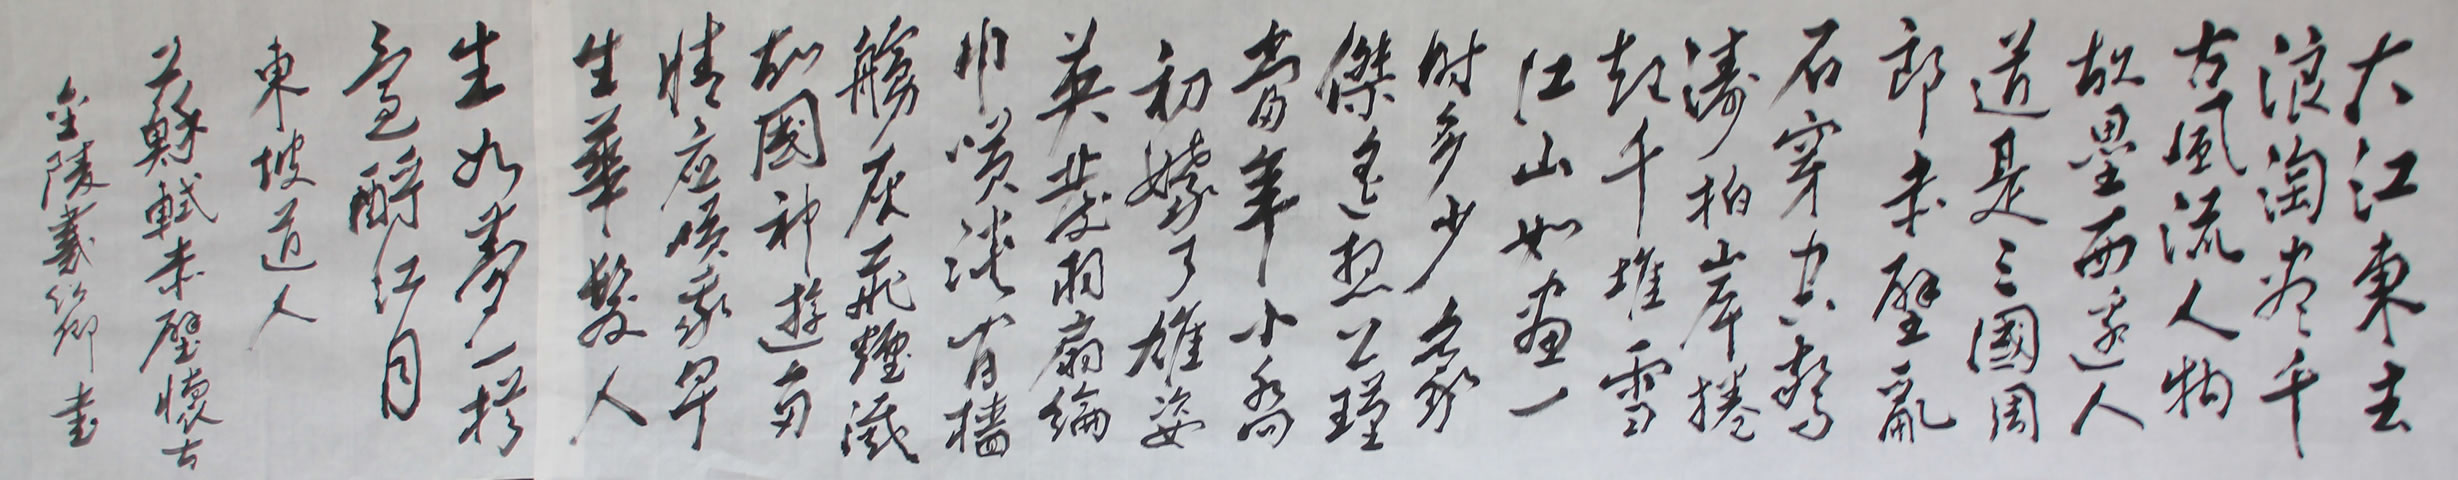 大江東去
浪淘盡千
古風流人物
故壘西邊人
道是三國周
郎赤壁亂
石穿空驚
濤拍岸捲
起千堆雪
江山如畫一
時多少豪
傑遙想公瑾
當年小喬
初嫁了雄姿
英發羽扇綸
巾咲談间檣
艣灰飛煙滅
故國神遊多
情應咲我早
生華髮人
生如夢一樽
還酹江月
東坡道人
蘇軾赤壁懷古
金陵書